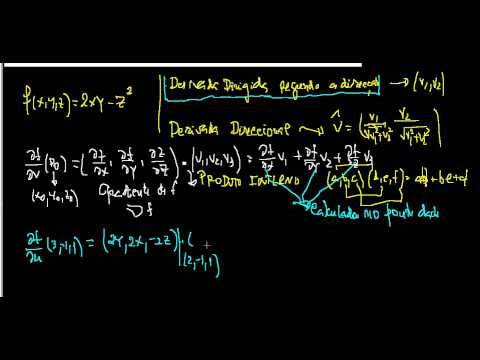 f(x,y,z) = 2xy - z²
Derivada Dirigida segundo a direcção → (v₁,v₂)
Derivada Direccional → v̂ = (v₁/√(v₁²+v₂²), v₂/√(v₁²+v₂²))
∂f/∂v (P₀) = (∂f/∂x, ∂f/∂y, ∂f/∂z) · (v₁,v₂,v₃) = ∂f/∂x v₁ + ∂f/∂y v₂ + ∂f/∂z v₃
(x₀,y₀,z₀)
Gradiente de f
∇f
PRODUTO INTERNO
(a,b,c)·(d,e,f) = ad+be+cf
Calculadas no ponto dado
∂f/∂u (2,-1,1) = (2y, 2x, -2z)|(2,-1,1) · (